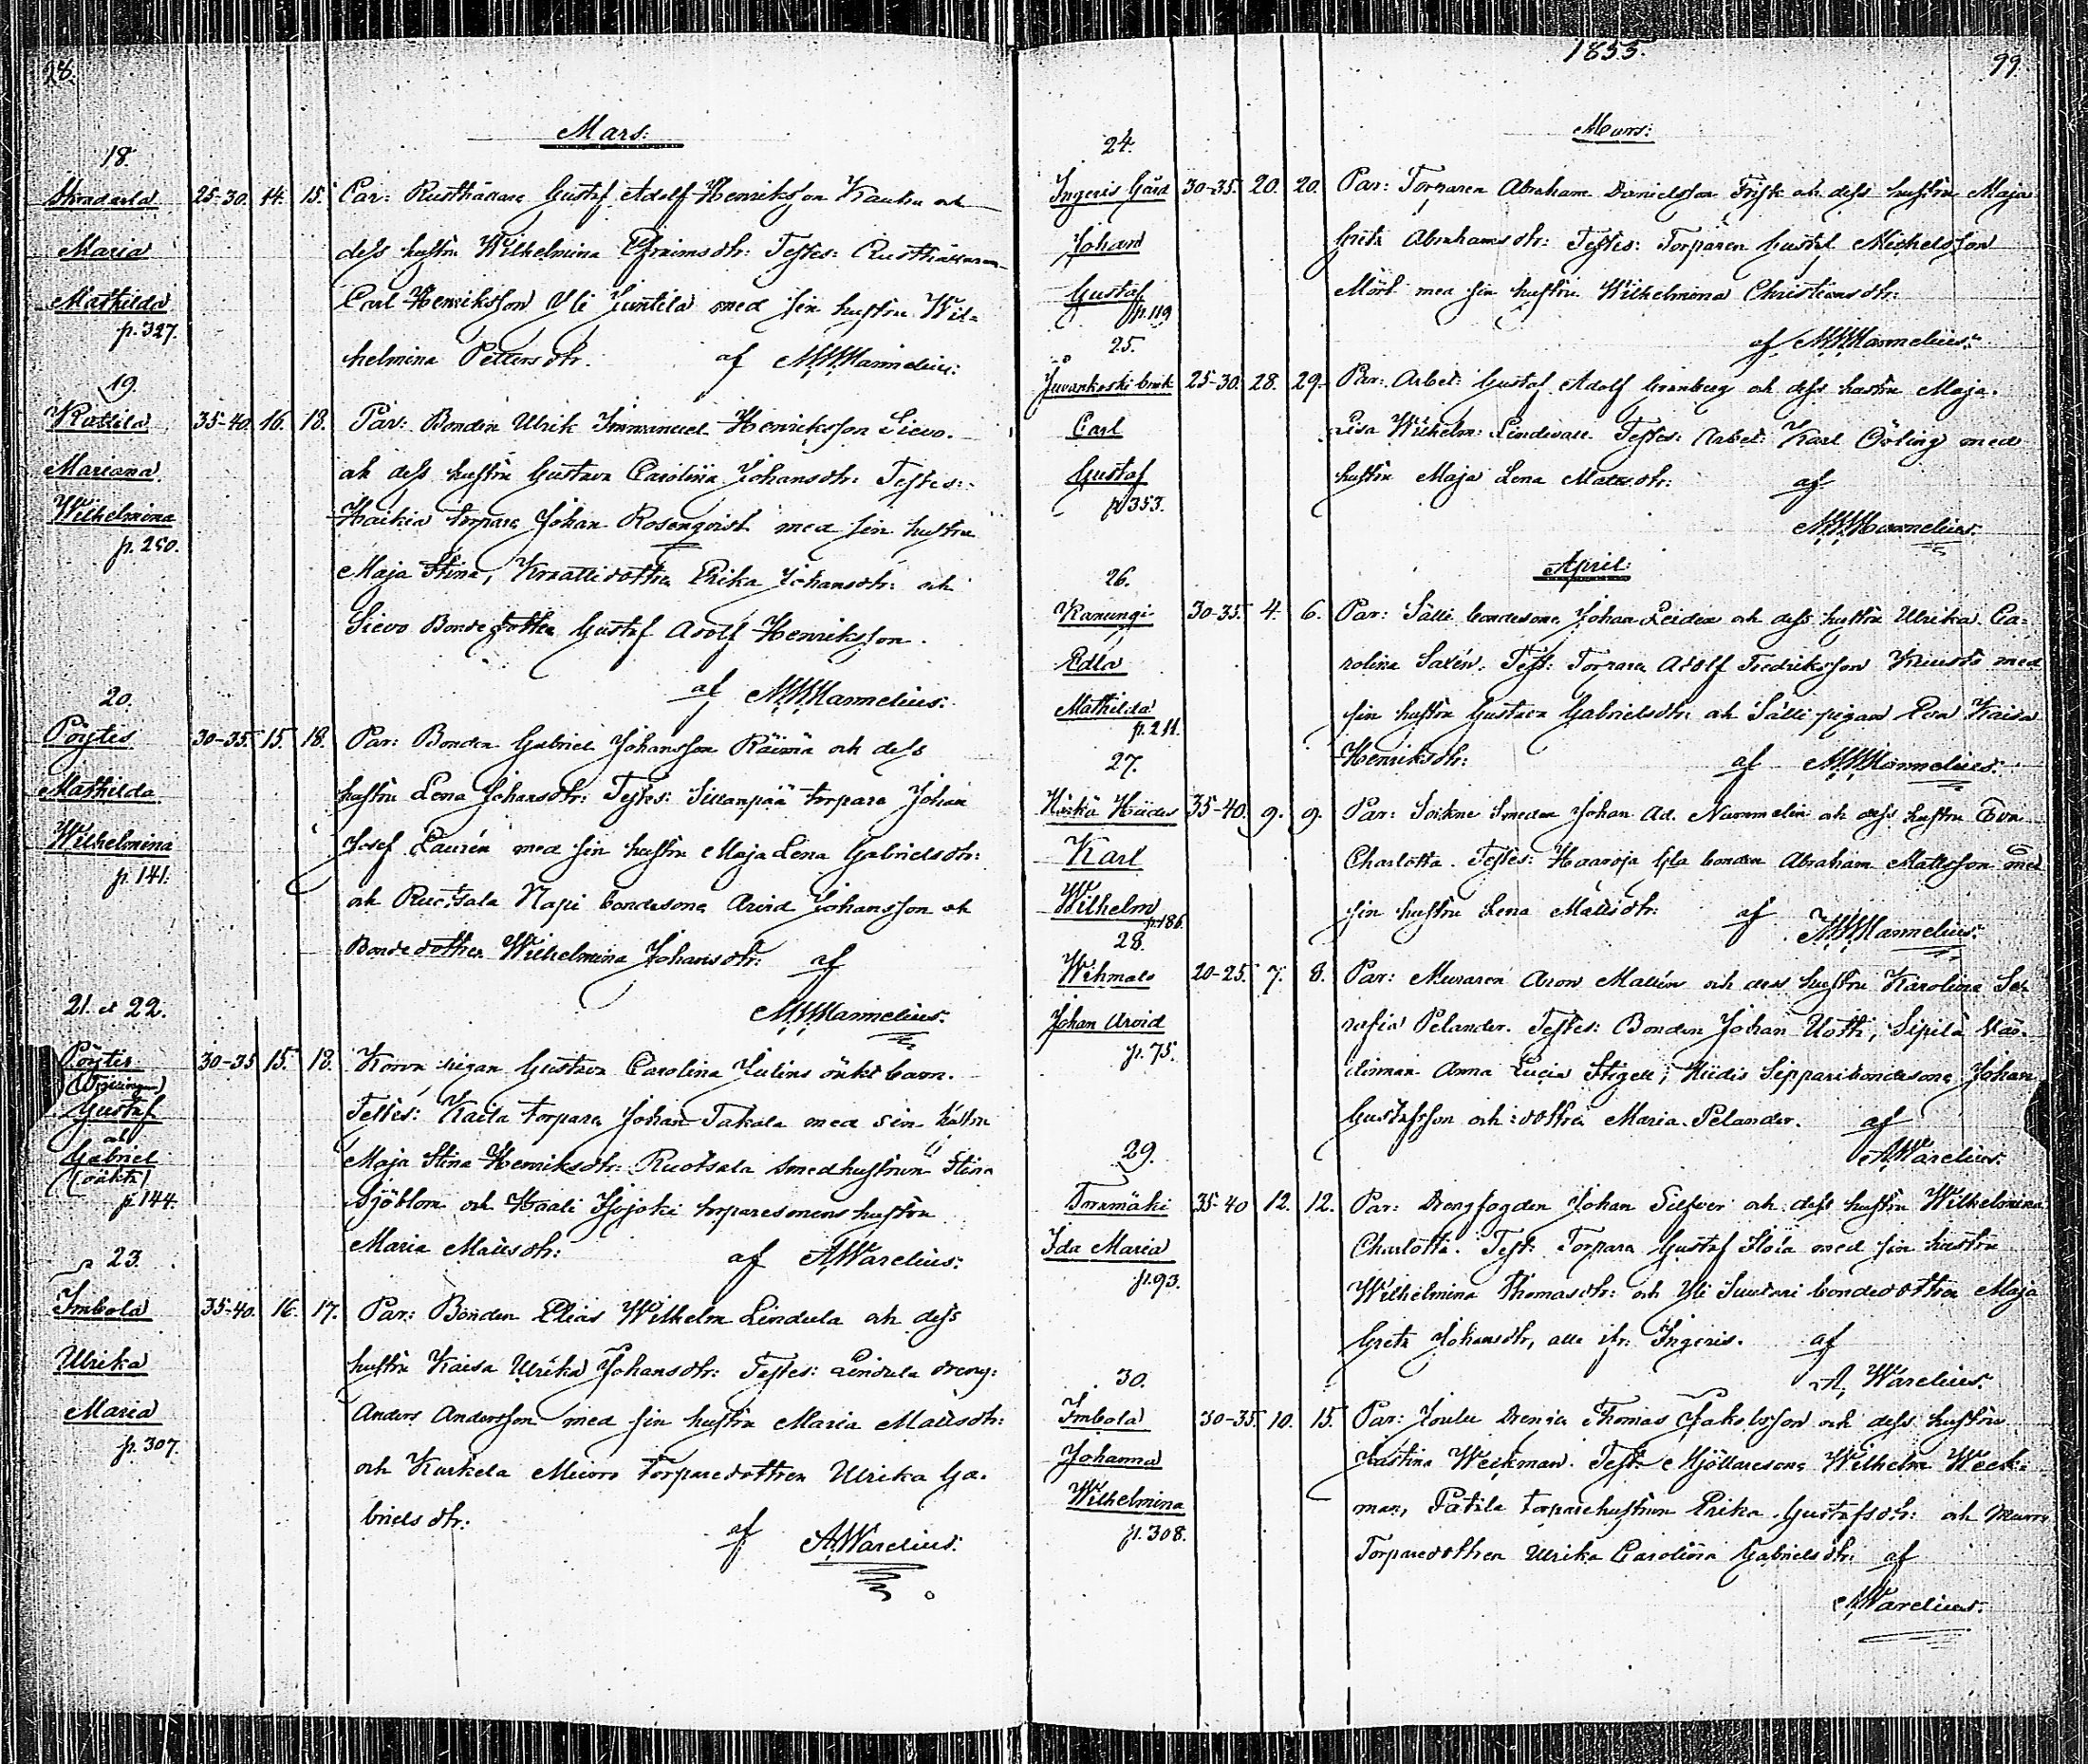 28.
Mars:
18.
Maria
Mathilda
p. 327.
25-30. 14. 15. Par: Rusthållare Gustaf Adolf Henriksson Kauhu och
dess hustru Wilhelmina Efraimsdtr: Testes: Rusthållaren
Carl Henriksson Yli Juntila med sin hustru Wil-
helmina Pettersdtr. af
19.
Kattila
Mariana
Wilhelmina
p. 250.
35-40. 16. 18. Par: Bonden Ulrik Immanuel Henriksson Sievo.
och dess hustru Gustava Carolina Johansdtr: Testes:
Haikia torpare Johan Rosenqvist med sin hustru
Maja Stina, dottren Erika Johansdtr: och
Sievo Bonde Gustaf Adolf Henriksson.
af
20.
Pöytis
Mathilda
Wilhelmina
p. 141.
30-35. 15. 18. Par: Bonden Gabriel Johansson och dess
hustru Lena Johansdtr: Testes: Sillanpää torpare Johan
Josef Laurén med sin hustru Maja Lena Gabrielsdtr:
och Ruotsala Napi bondesone Arvid Johansson och
Bondedottren Wilhelmina Johansdtr: af
21. et 22.
Pöytis
Gustaf
och
Gabriel
(oäkta)
p. 144.
30-35 15. 18. pigan Gustava Carolina Julins oäkta barn.
Testes: Kaila torpare Johan Takala med sin hustru
Maja Stina Henriksdtr: Ruotsala smedhustrun Stina
Sjöblom och Haali Isojoki torparesonens hustru
Maria Matsdtr: af A. Warelius:
23.
Imbola
Ulrika
Maria
p. 307.
35-40. 16. 17. Par: Bonden Elias Wilhelm Lindula och dess
hustru Kaisa Ulrika Johansdtr: Testes: Lindula dreng:
Anders Andersson med sin hustru Maria Matsdtr:
och Kurkela torparedottren Ulrika Ga-
brielsdtr: af A. Warelius:
1855.
99.
Mars:
24.
Ingeris Gård
Johan
Gustaf
p. 119
30-35. 20. 20. Par: Torparen Abraham Danielsson Frisk och dess hustru Maja
Greta Abrahamsdtr: Testes: Torparen Gustaf Michelsson
Mört med sin hustru Wilhelmina Christiansdtr:
af
25.
Juvankoski bruk
Carl
Gustaf
p. 353.
25-30. 28. 29. Par: Arbet: Gustaf Adolf Granberg och dess hustru Maja
Lisa Wilhelm: Lindevall. Testes: Arbet: Karl Öörling med
hustru Maja Lena Matsdtr: af
April:
26.
Kanungi
Edla
Mathilda
p. 211.
30-35. 4. 6. Par: Sälli bondesone Johan Leiden och dess hustru Ulrika Ca-
rolina Saxén. Test: Torpare Adolf Fredriksson med
sin hustru Gustava Gabrielsdtr: och Sälli pigan Eva Kaisa
Henriksdtr: af
27.
Karl
Wilhelm
p. 186.
35-40. 9. 9. Par: Sockne Smeden Johan Ad. Nummelin och dess hustru Eva
Charlotta. Testes: Haaroja bonden Abraham Mattsson med
sin hustru Lena Matsdtr: af
28.
Wehmalo
Johan Arvid
p. 75.
20-25. 7. 8. Par: Muraren Aron Mallén och dess hustru Karolina Se-
rafia Pelander. Testes: Bonden Johan Uotti, Sipilä
Anna Lucia Stigell; Hiidis Sippari bondesone Johan
Gustafsson och dottren Maria Pelander. af
A. Warelius:
29.
Tornmäki
Ida Maria
p. 93.
35-40 12. 12. Par: Drengfogden Johan Silfver och dess hustru Wilhelmina
Charlotta. Test: Torpare Gustaf Flöia med sin hustru
Wilhelmina Thomasdtr: och Yli Suutari bondedottren Maja
Greta Johansdtr, alla ifr. Ingeris. af
A. Warelius:
30.
Imbola
Johanna
Wilhelmina
p. 308.
30-35. 10. 15. Par: Joulu Drengen Thomas Jakobsson och dess hustru
Kristina Weckman. Test: Mjölnaresone Wilhelm Weck-
man, Patila torparehustrun Erika Gustafsdtr: och
Torparedottren Ulrika Carolina Gabrielsdtr: af
A. Warelius: